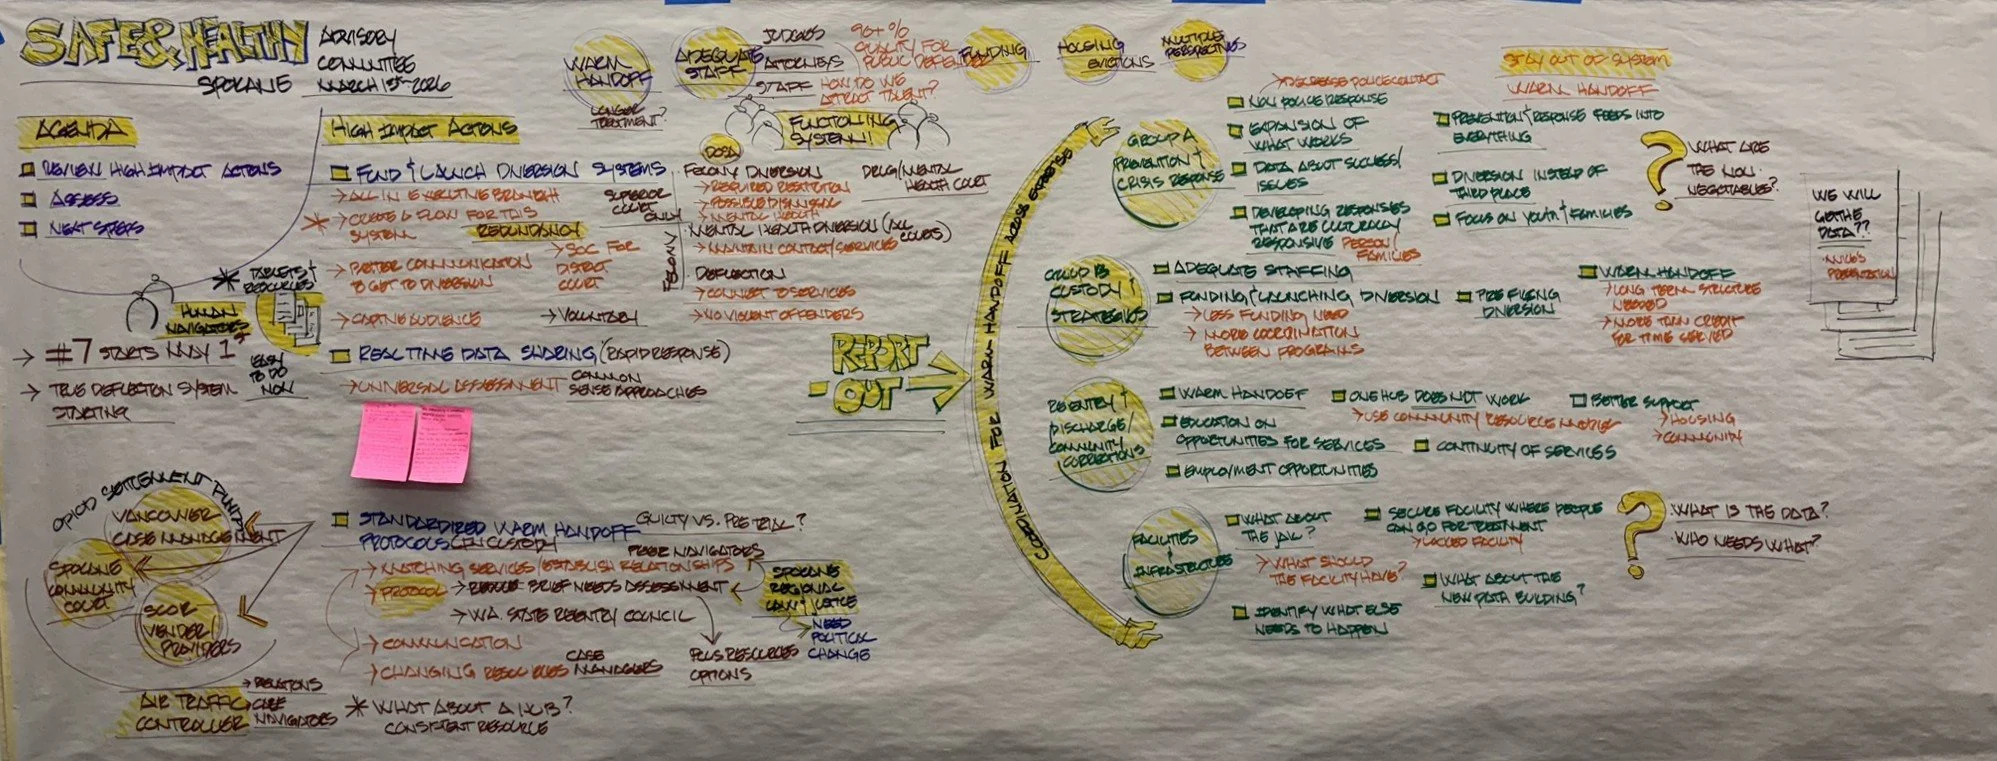 SAFE & HEALTHY
SPOKANE
ADVISORY
COMMITTEE
MARCH 13TH 2026
AGENDA
REVIEW HIGH IMPACT ACTIONS
ASSESS
NEXT STEPS
HUMAN
NAVIGATORS
* TABLETS &
RESOURCES
EASY
TO DO
NOW
→ #7 STARTS MAY 1ST
→ TRUE DEFLECTION SYSTEM
STARTING
HIGH IMPACT ACTIONS
FUND & LAUNCH DIVERSION SYSTEMS
→ ALL IN EXECUTIVE BRANCH
* → CREATE A FLOW FOR THIS
SYSTEM
REDUNDANCY
→ SOC FOR
DISTRICT
COURT
→ BETTER COMMUNICATION
TO GET TO DIVERSION
→ CAPTIVE AUDIENCE
→ VOLUNTARY
SUPERIOR
COURT
ONLY
REAL TIME DATA SHARING (RAPID RESPONSE)
→ UNIVERSAL ASSESSMENT
COMMON
SENSE APPROACHES
WARM
HANDOFF
LONGER
TREATMENT?
ADEQUATE
STAFF
JUDGES
ATTORNEYS
STAFF
90+%
QUALIFY FOR
PUBLIC DEFENDER
HOW DO WE
ATTRACT TALENT?
FUNDING
HOUSING
EVICTIONS
MULTIPLE
PERSPECTIVES
FUNCTIONING
SYSTEM!!
DOSA
FELONY DIVERSION
→ REQUIRED RESTITUTION
→ POSSIBLE DISMISSAL
→ MENTAL HEALTH
DRUG/MENTAL
HEALTH COURT
MENTAL HEALTH DIVERSION (ALL
COURTS)
→ MAINTAIN CONTACT/SERVICES
FELONY
DEFLECTION
→ CONNECT TO SERVICES
→ NO VIOLENT OFFENDERS
OPIOD SETTLEMENT FUND
VANCOUVER
CASE MANAGEMENT
SPOKANE
COMMUNITY
COURT
SCOR
VENDER/
PROVIDERS
AIR TRAFFIC
CONTROLLER
→ RELATIONS
CARE
NAVIGATORS
STANDARDIZED WARM HANDOFF
PROTOCOLS (IN CUSTODY
GUILTY VS. PRE TRIAL?
PEER NAVIGATORS
→ MATCHING SERVICES/ESTABLISH RELATIONSHIPS
→ PROTOCOL
→ BRIEF NEEDS ASSESSMENT
→ WA. STATE REENTRY COUNCIL
→ COMMUNICATION
→ CHANGING RESOURCES
CASE
MANAGERS
PLUS RESOURCES
OPTIONS
SPOKANE
REGIONAL
LAW & JUSTICE
NEED
POLITICAL
CHANGE
* WHAT ABOUT A HUB?
CONSISTENT RESOURCE
REPORT
-OUT
COORDINATION FOR WARM-HANDOFF ACROSS EXPERTISE
GROUP A
PREVENTION &
CRISIS RESPONSE
→ DECREASE POLICE CONTACT
NON POLICE RESPONSE
EXPANSION OF
WHAT WORKS
DATA ABOUT SUCCESS/
ISSUES
DEVELOPING RESPONSES
THAT ARE CULTURALLY
RESPONSIVE PERSON/
FAMILIES
STAY OUT OF SYSTEM
WARM HANDOFF
PREVENTION & RESPONSE FEEDS INTO
EVERYTHING
DIVERSION INSTEAD OF
THIRD PLACE
FOCUS ON YOUTH & FAMILIES
? WHAT ARE
THE NON-
NEGOTIABLES?
GROUP B
CUSTODY &
STRATEGIES
ADEQUATE STAFFING
FUNDING & LAUNCHING DIVERSION
→ LESS FUNDING NEED
→ MORE COORDINATION
BETWEEN PROGRAMS
PRE FILEING
DIVERSION
WARM HANDOFF
→ LONG TERM STRUCTURE
NEEDED
→ MORE THAN CREDIT
FOR TIME SERVED
WE WILL
GET THE
DATA??
PRESENTATION
REENTRY &
DISCHARGE/
COMMUNITY
CORRECTIONS
WARM HANDOFF
EDUCATION ON
OPPORTUNITIES FOR SERVICES
EMPLOYMENT OPPORTUNITIES
ONE HUB DOES NOT WORK
→ USE COMMUNITY RESOURCE MODEL
CONTINUITY OF SERVICES
BETTER SUPPORT
→ HOUSING
→ COMMUNITY
FACILITIES
&
INFRASTRUCTURE
WHAT ABOUT
THE JAIL?
→ WHAT SHOULD
THE FACILITY HAVE?
IDENTIFY WHAT ELSE
NEEDS TO HAPPEN
SECURE FACILITY WHERE PEOPLE
CAN GO FOR TREATMENT
→ LOCKED FACILITY
WHAT ABOUT THE
NEW DATA BUILDING?
? WHAT IS THE DATA?
WHO NEEDS WHAT?